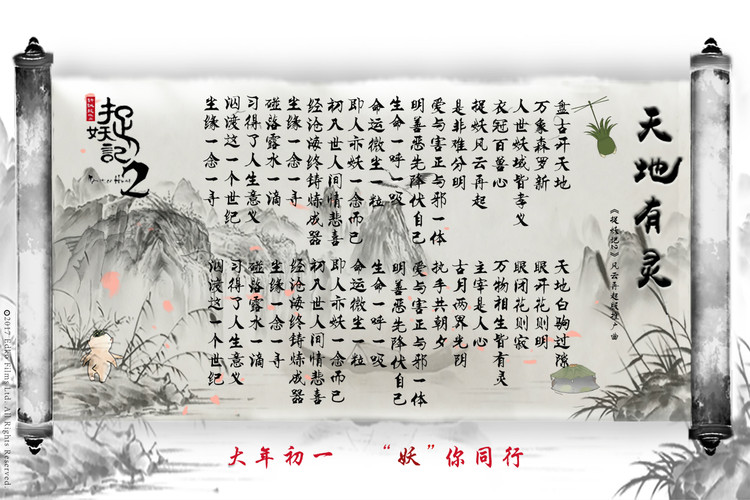 天地有灵
盘古开天地
万象森罗新
人世妖域皆孝义
衣冠百兽心
捉妖风云再起
是非难分明
爱与害正与邪一体
明善恶先降伏自己
生命一呼一吸
命运微尘一粒
即人亦妖一念而已
初入世人间情悲喜
经沧海终铸炼成器
尘缘一念一寻
碰落露水一滴
习得了人生意义
泅渡这一个世纪
尘缘一念一寻
天地白驹过隙
眼开花则明
眼闭花则寂
万物相生皆有灵
主宰是人心
古月两界光阴
执手共朝夕
爱与害正与邪一体
明善恶先降伏自己
生命一呼一吸
命运微尘一粒
即人亦妖一念而已
初入世人间情悲喜
经沧海终铸炼成器
尘缘一念一寻
碰落露水一滴
习得了人生意义
泅渡这一个世纪
《捉妖记2》风云再起 推广曲
捉妖記2
Monster Hunt
大年初一 “妖”你同行
©2017 Edko Films Ltd. All Rights Reserved.